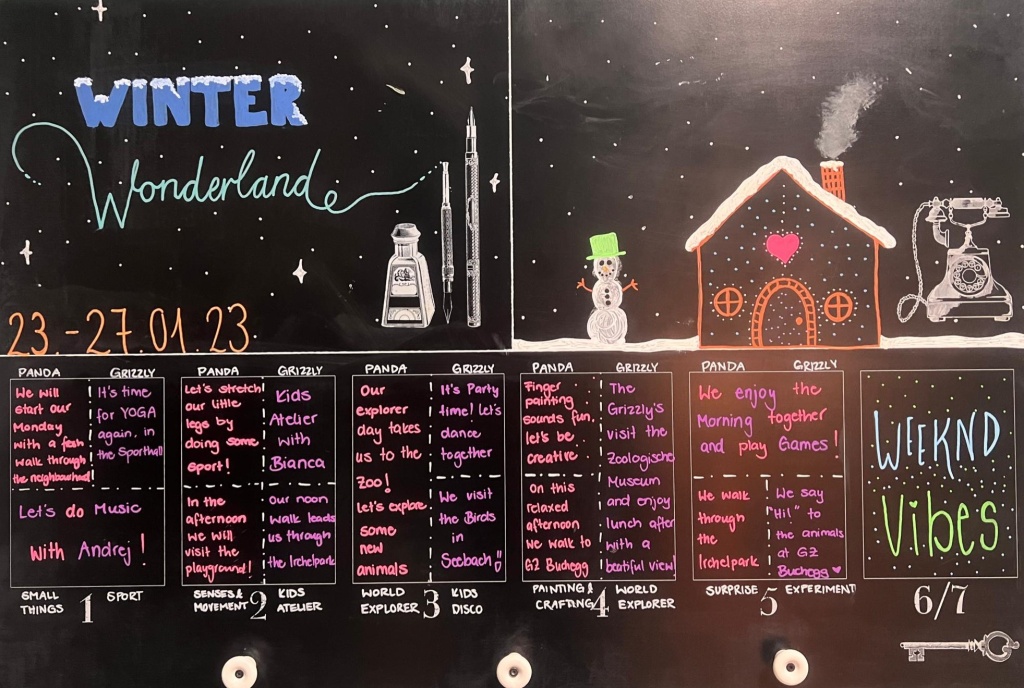 WINTER
Wonderland
23.-27.01.23
PANDA
We will
start our
Monday
with a fesh
walk through
the neighbourhood!
GRIZZLY
It's time
for YOGA
again, in
the Sporthall
Let's do Music
With Andrej!
SMALL
THINGS
1
SPORT
PANDA
Let's stretch
our little
legs by
doing some
sport!
GRIZZLY
Kids
Atelier
with
Bianca
In the
afternoon
we will
visit the
playground!
Our noon
walk leads
us through
the Irchelpark
SENSES &
MOVEMENT
2
KIDS
ATELIER
PANDA
Our
explorer
day takes
us to the
Zoo!
Let's explore
some
new
animals
GRIZZLY
It's Party
time! Let's
dance
together
We visit
the Birds
in
Seebach!!
WORLD
EXPLORER
3
KIDS
DISCO
PANDA
Finger
painting
sounds fun,
let's be
creative
On this
relaxed
afternoon
we walk to
GZ Buchegg
GRIZZLY
The
Grizzly's
visit the
Zoologische
Museum
and enjoy
lunch after
with a
beatiful view!
PAINTING &
CRAFTING
4
WORLD
EXPLORER
PANDA
GRIZZLY
We enjoy the
Morning together
and play Games!
We walk
through
the
Irchelpark
We say
"Hi!" to
the animals
at GZ
Buchegg
SURPRISE
5
EXPERIMENT
WEEKND
Vibes
6/7